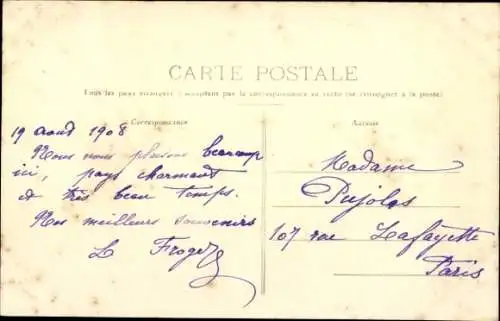 CARTE POSTALE
Tous les pays étrangers n'acceptent pas la correspondance au recto (se renseigner à la poste)
Correspondance
19 Aout 1908
Nous nous plaisons beaucoup
ici, pays charmant
et très beau temps.
Nos meilleurs souvenirs
L Froger
Adresse
Madame
Pujolas
107 rue Lafayette
Paris